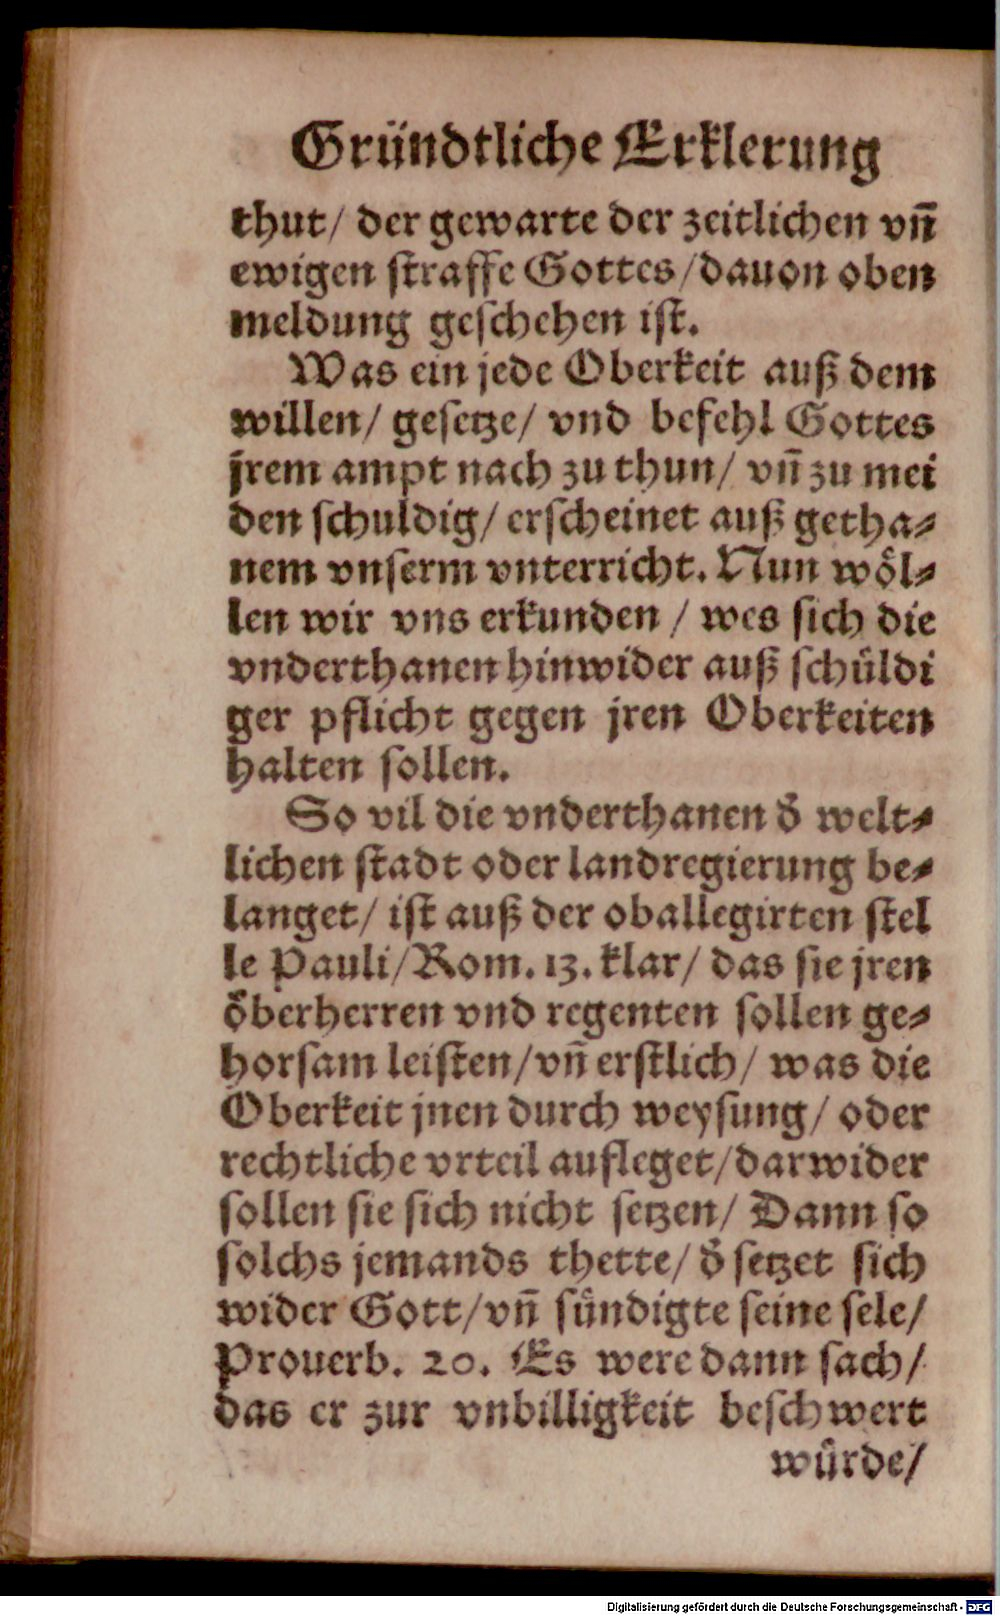 Gründtliche Erklerung
thut/ der gewarte der zeitlichen vñ
ewigen straffe Gottes/dauon oben
meldung geschehen ist.
Was ein jede Oberkeit auß dem
willen/ gesetze/ vnd befehl Gottes
jrem ampt nach zu thun/ vñ zu mei
den schuldig/ erscheinet auß getha⸗
nem vnserm vnterricht. Nun wöl⸗
len wir vns erkunden / wes sich die
vnderthanen hinwider auß schüldi
ger pflicht gegen jren Oberkeiten
halten sollen.
So vil die vnderthanen d̃ welt⸗
lichen stadt oder landregierung be⸗
langet/ ist auß der oballegirten stel
le Pauli/Rom. 13. klar/ das sie jren
öberherren vnd regenten sollen ge⸗
horsam leisten/vñ erstlich/ was die
Oberkeit jnen durch weysung/ oder
rechtliche vrteil aufleget/darwider
sollen sie sich nicht setzen/ Dann so
solchs jemands thette/ d̃ setzet sich
wider Gott/vñ sündigte seine sele/
Prouerb. 20. Es were dann sach/
das er zur vnbilligkeit beschwert
würde/
Digitalisierung gefördert durch die Deutsche Forschungsgemeinschaft - DFG